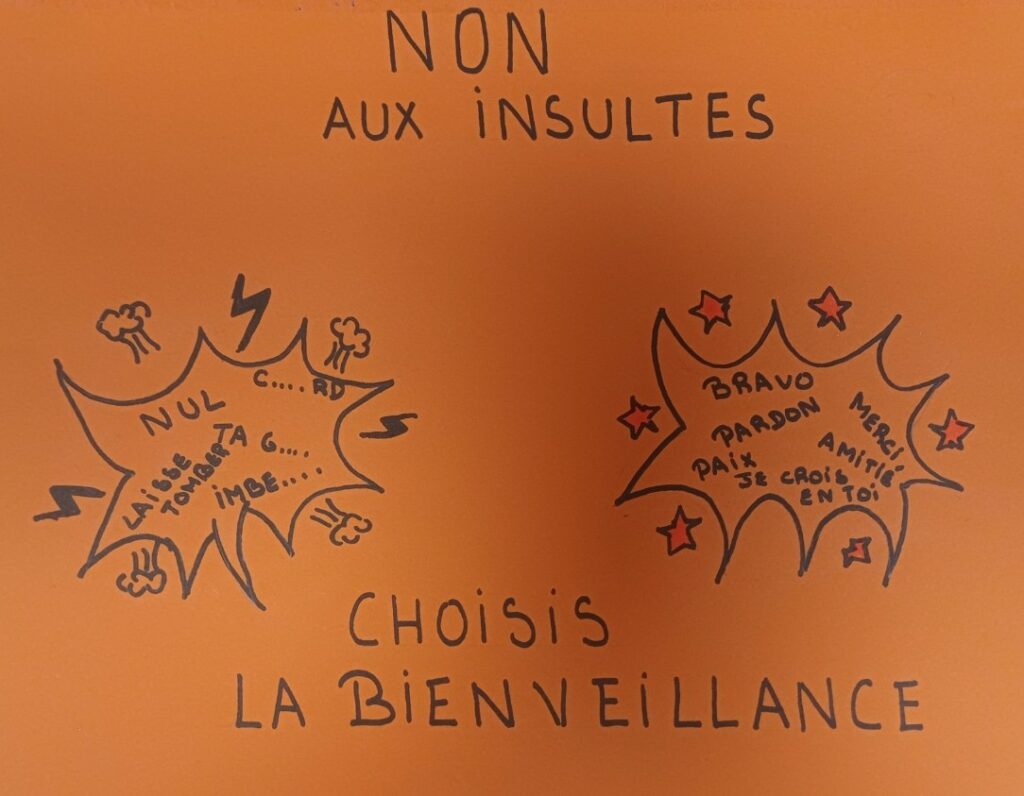 NON
AUX INSULTES
C....RD
NUL
TA G....
LAISSE
TOMBER
IMBE....
BRAVO
PARDON
MERCI
PAIX
AMITIÉ
JE CROIS
EN TOI
CHOISIS
LA BIENVEILLANCE